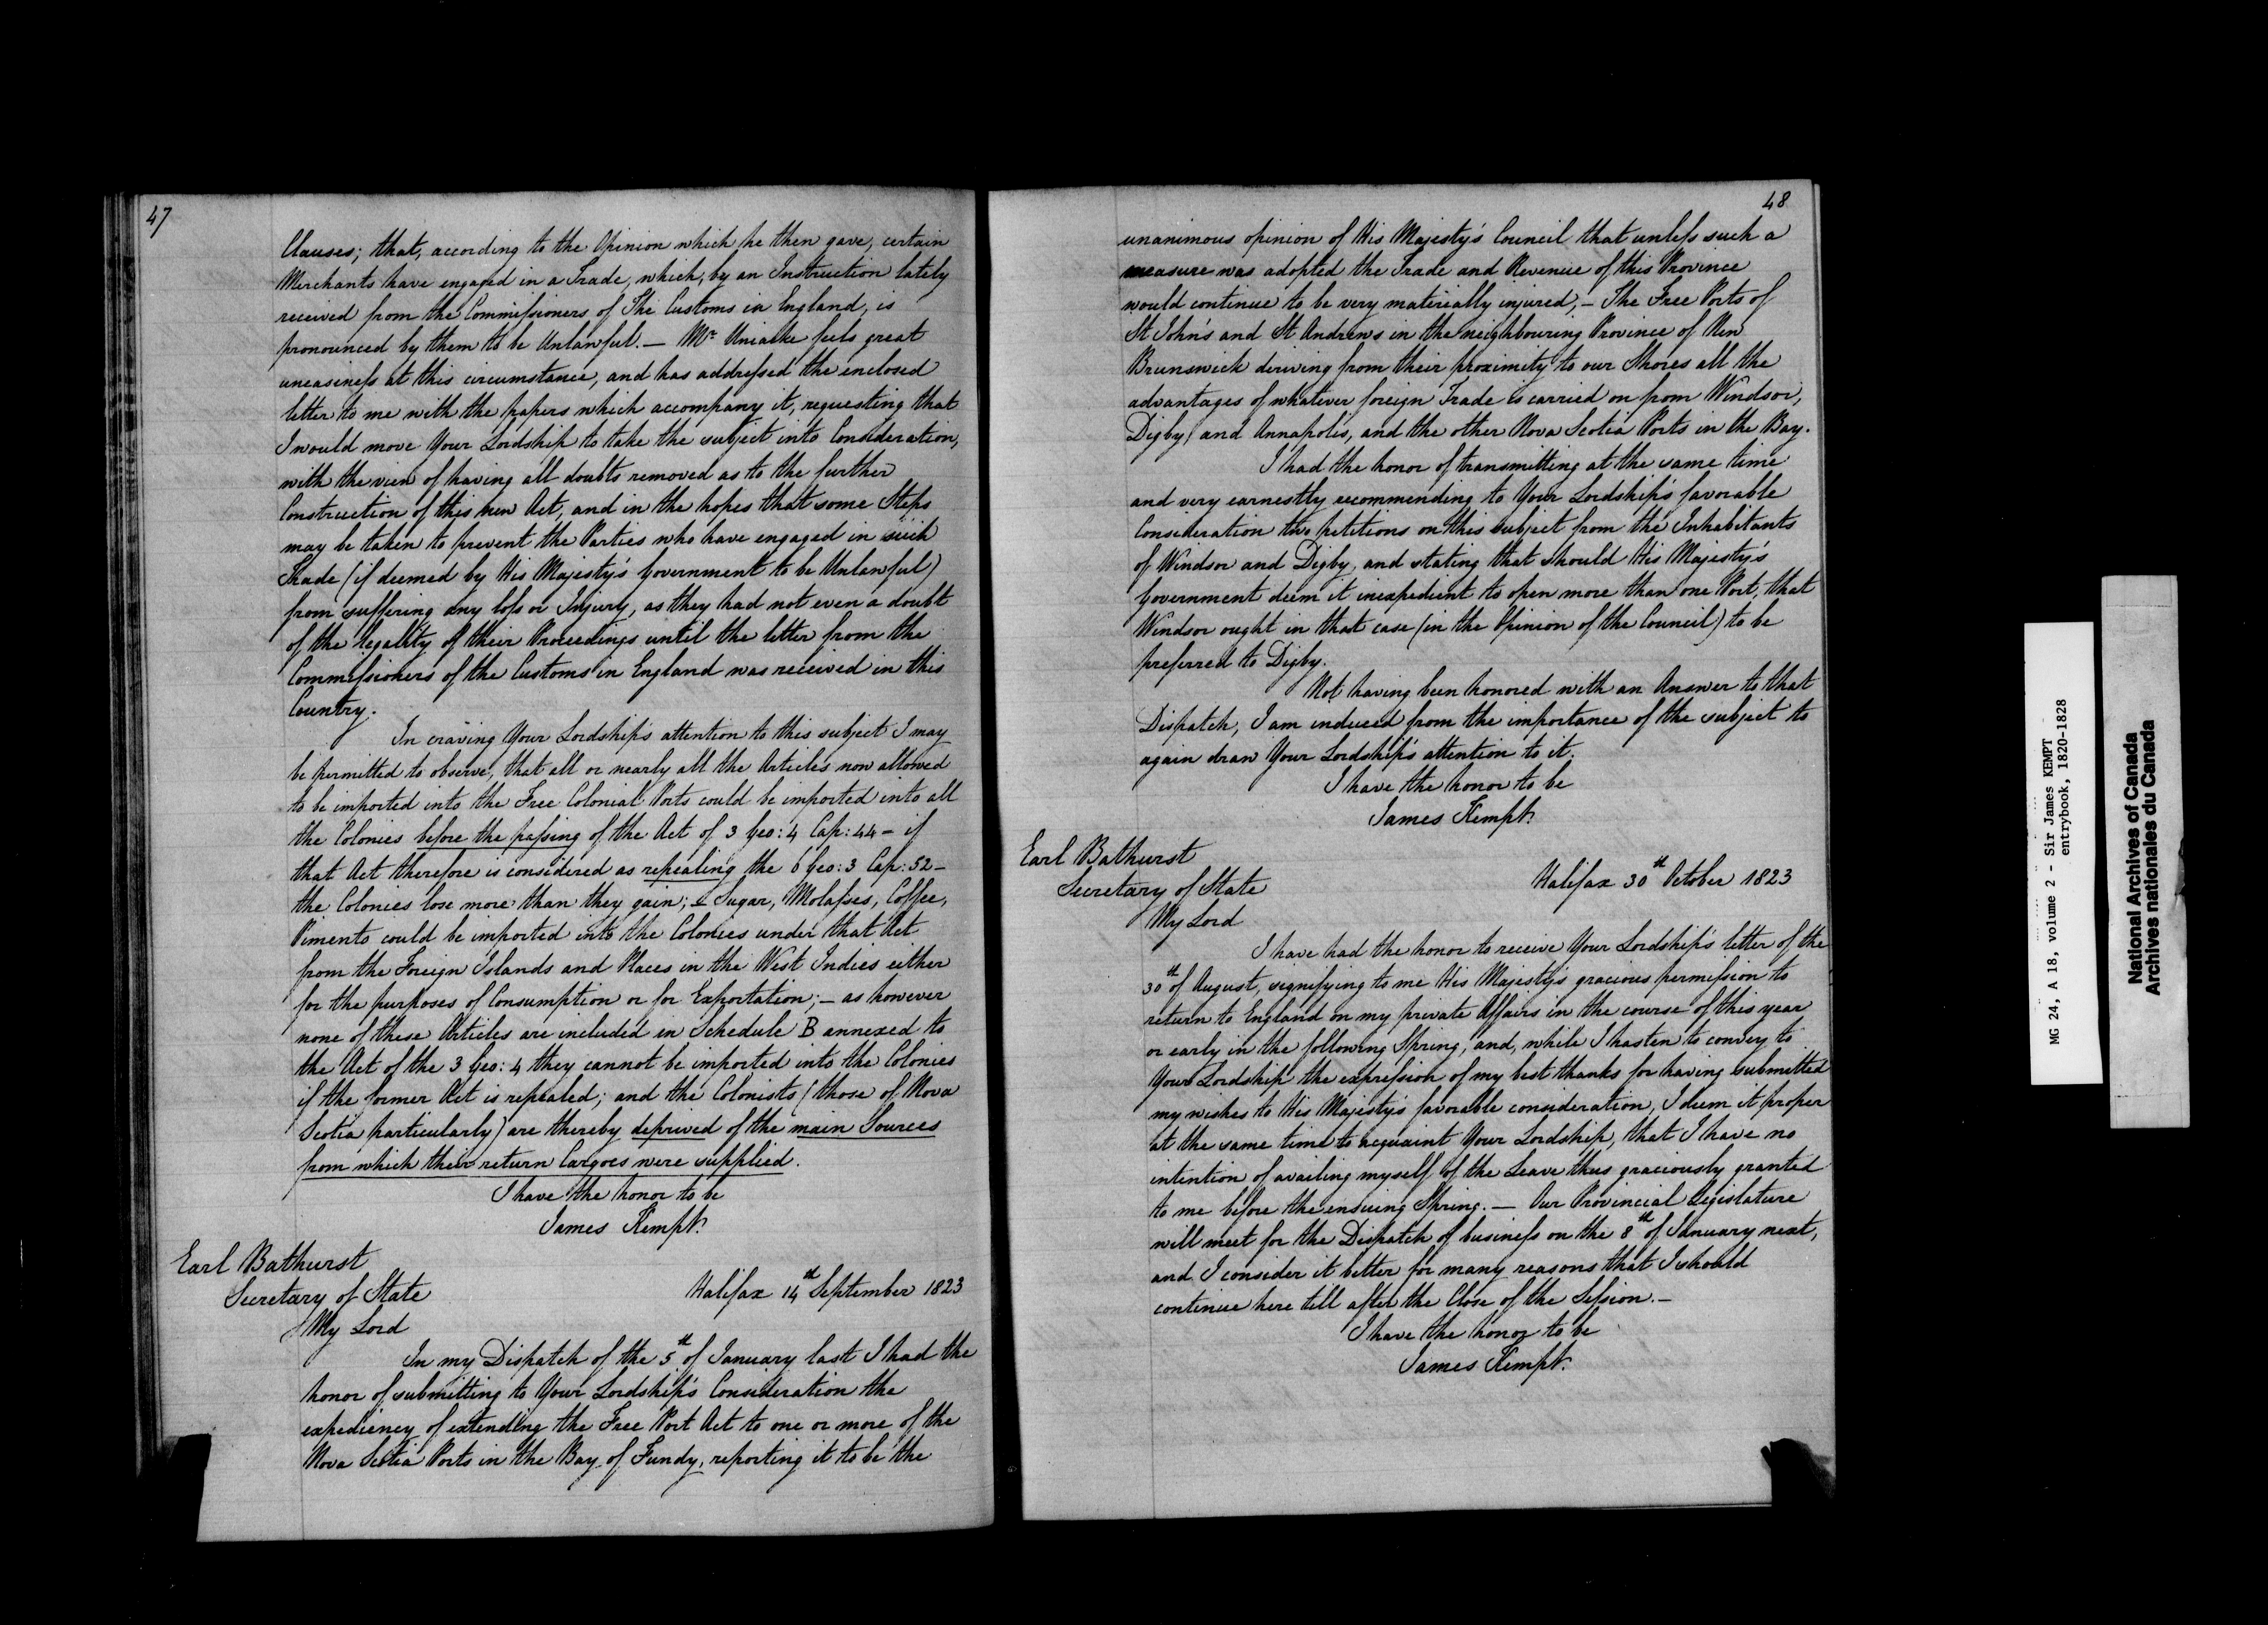 47
Clauses; that, according to the Opinion which he then gave, certain
Merchants have engaged in a Trade, which, by an Instruction lately
received from the Commissioners of The Customs in England, is
pronounced by them to be Unlawful. — Mr. Uniacke feels great
uneasiness at this circumstance, and has addressed the enclosed
letter to me with the papers which accompany it, requesting that
I would move Your Lordship to take the subject into Consideration,
with the view of having all doubts removed as to the further
Construction of this new Act, and in the hopes that some Steps
may be taken to prevent the Parties who have engaged in such
Trade (if deemed by His Majesty's Government to be Unlawful)
from suffering any loss or Injury, as they had not even a doubt
of the legality of their Proceedings until the letter from the
Commissioners of the Customs in England was received in this
Country.
In craving Your Lordship's attention to this subject I may
be permitted to observe, that all or nearly all the Articles now allowed
to be imported into the Free Colonial Ports could be imported into all
the Colonies before the passing of the Act of 3 Geo: 4 Cap: 44 — if
that Act therefore is considered as repealing the 6 Geo: 3 Cap: 52 —
the Colonies lose more than they gain; — Sugar, Molasses, Coffee,
Pimento could be imported into the Colonies under that Act
from the Foreign Islands and Places in the West Indies either
for the purposes of Consumption or for Exportation; — as however
none of these Articles are included in Schedule B annexed to
the Act of the 3 Geo: 4 they cannot be imported into the Colonies
if the former Act is repealed; and the Colonists (those of Nova
Scotia particularly) are thereby deprived of the main Sources
from which their return Cargoes were supplied.
I have the honor to be
James Kempt.
Earl Bathurst
Secretary of State
Halifax 14th September 1823
My Lord
In my Dispatch of the 5th of January last I had the
honor of submitting to Your Lordship's Consideration the
expediency of extending the Free Port Act to one or more of the
Nova Scotia Ports in the Bay of Fundy, reporting it to be the
48
unanimous opinion of His Majesty's Council that unless such a
measure was adopted the Trade and Revenue of this Province
would continue to be very materially injured; — The Free Ports of
St John's and St Andrews in the neighbouring Province of New
Brunswick deriving from their proximity to our Shores all the
advantages of whatever foreign Trade is carried on from Windsor,
Digby, and Annapolis, and the other Nova Scotia Ports in the Bay.
I had the honor of transmitting at the same time
and very earnestly recommending to Your Lordship's favorable
Consideration two petitions on this subject from the Inhabitants
of Windsor and Digby, and stating that should His Majesty's
Government deem it inexpedient to open more than one Port, that
Windsor ought in that case (in the Opinion of the Council) to be
preferred to Digby.
Not having been honored with an Answer to that
Dispatch, I am induced from the importance of the subject to
again draw Your Lordship's attention to it.
I have the honor to be
James Kempt.
Earl Bathurst
Secretary of State
Halifax 30th October 1823
My Lord
I have had the honor to receive Your Lordship's letter of the
30th of August, signifying to me His Majesty's gracious permission to
return to England on my private Affairs in the course of this year
or early in the following Spring; and, while I hasten to convey to
Your Lordship the expression of my best thanks for having submitted
my wishes to His Majesty's favorable consideration, I deem it proper
at the same time to acquaint Your Lordship, that I have no
intention of availing myself of the Leave thus graciously granted
to me before the ensuing Spring. — Our Provincial Legislature
will meet for the Dispatch of business on the 8th of January next,
and I consider it better for many reasons that I should
continue here till after the Close of the Session. —
I have the honor to be
James Kempt.
MG 24, A 18, volume 2 - Sir James KEMPT
entrybook, 1820-1828
National Archives of Canada
Archives nationales du Canada